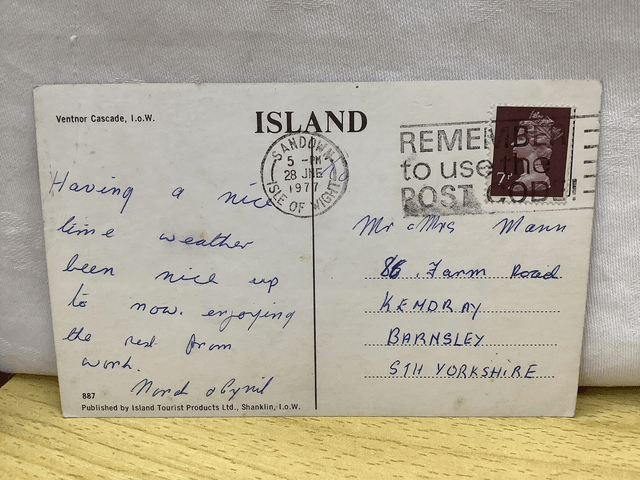 Ventnor Cascade, I.o.W.
ISLAND
SANDOWN
5 - PM
28 JNE
1977
ISLE OF WIGHT
REMEMBER
to use the
POST CODE!
7P
Having a nice
time weather
been nice up
to now. enjoying
the rest from
work.
& Cyril
Mr & Mrs Mann
86, Farm Road
KENDRAY
BARNSLEY
STH YORKSHIRE
887
Published by Island Tourist Products Ltd., Shanklin, I.o.W.